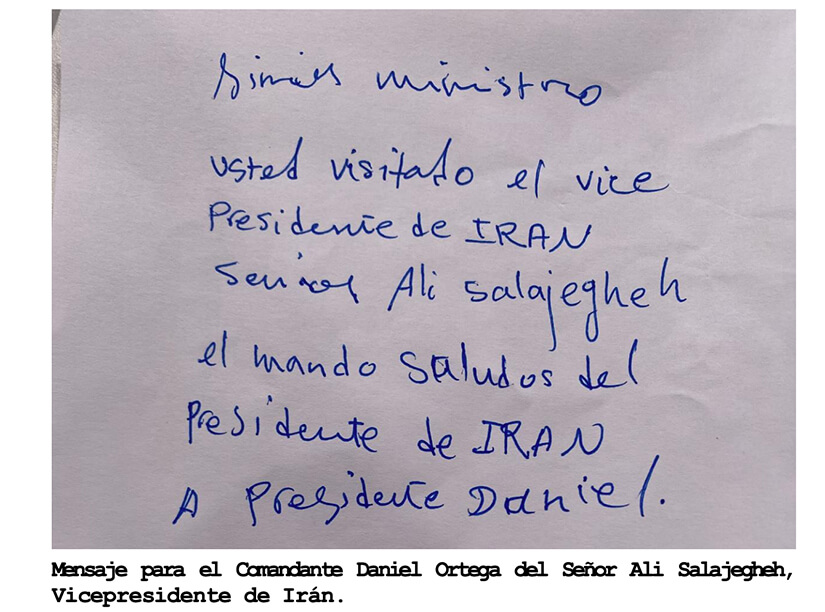 ministro
usted visitado el vice
Presidente de IRAN
Ali Salajegheh
el mando saludos del
Presidente de IRAN
A Presidente Daniel.
Mensaje para el Comandante Daniel Ortega del Señor Ali Salajegheh,
Vicepresidente de Irán.